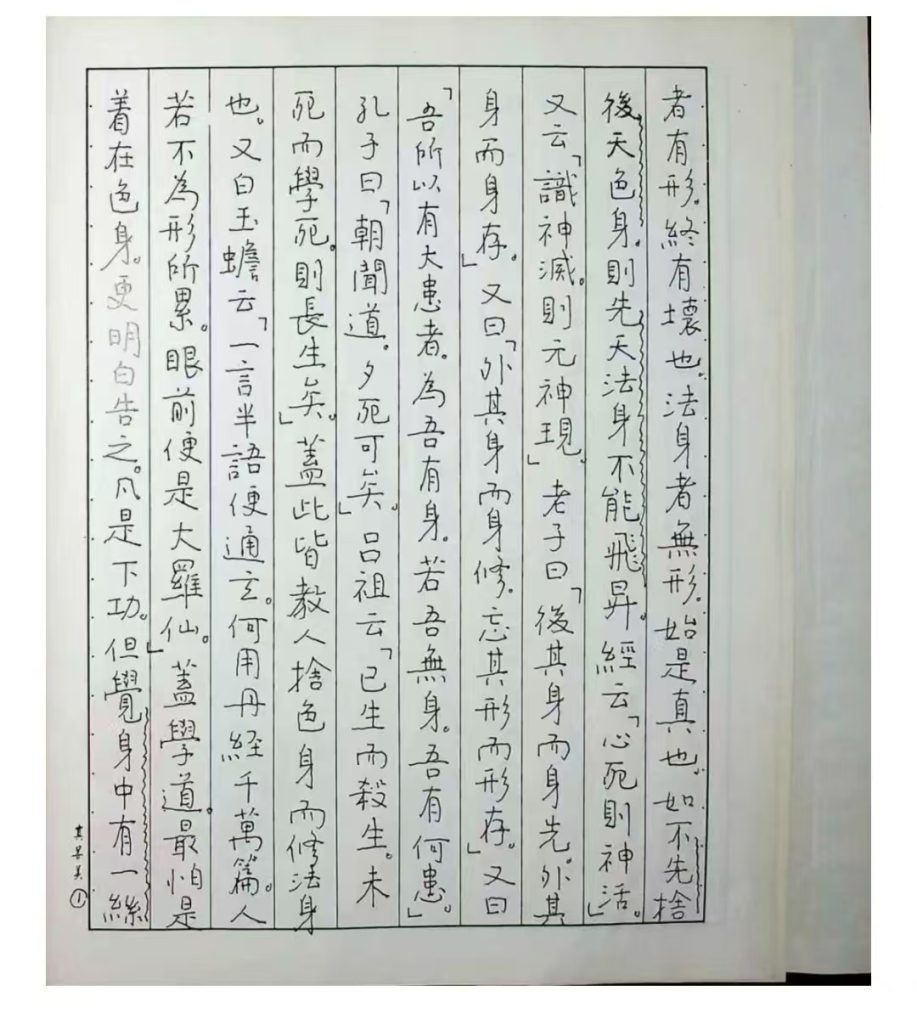 者有形。終有壞也。法身者無形。始是真也。如不先捨
後天色身。則先天法身不能飛昇。經云「心死則神活。」
又云「識神滅。則元神現」老子曰「後其身而身先。外其
身而身存。」又曰「外其身而身修。忘其形而形存。」又曰
「吾所以有大患者。為吾有身。若吾無身。吾有何患。」
孔子曰「朝聞道。夕死可矣」。呂祖云「已生而殺生。未
死而學死。則長生矣」。蓋此皆教人捨色身而修法身
也。又白玉蟾云「一言半語便通玄。何用丹経千萬篇。人
若不為形所累。眼前便是大羅仙。」蓋學道。最怕是
着在色身。更明白告之。凡是下功。但覺身中有一絲
①